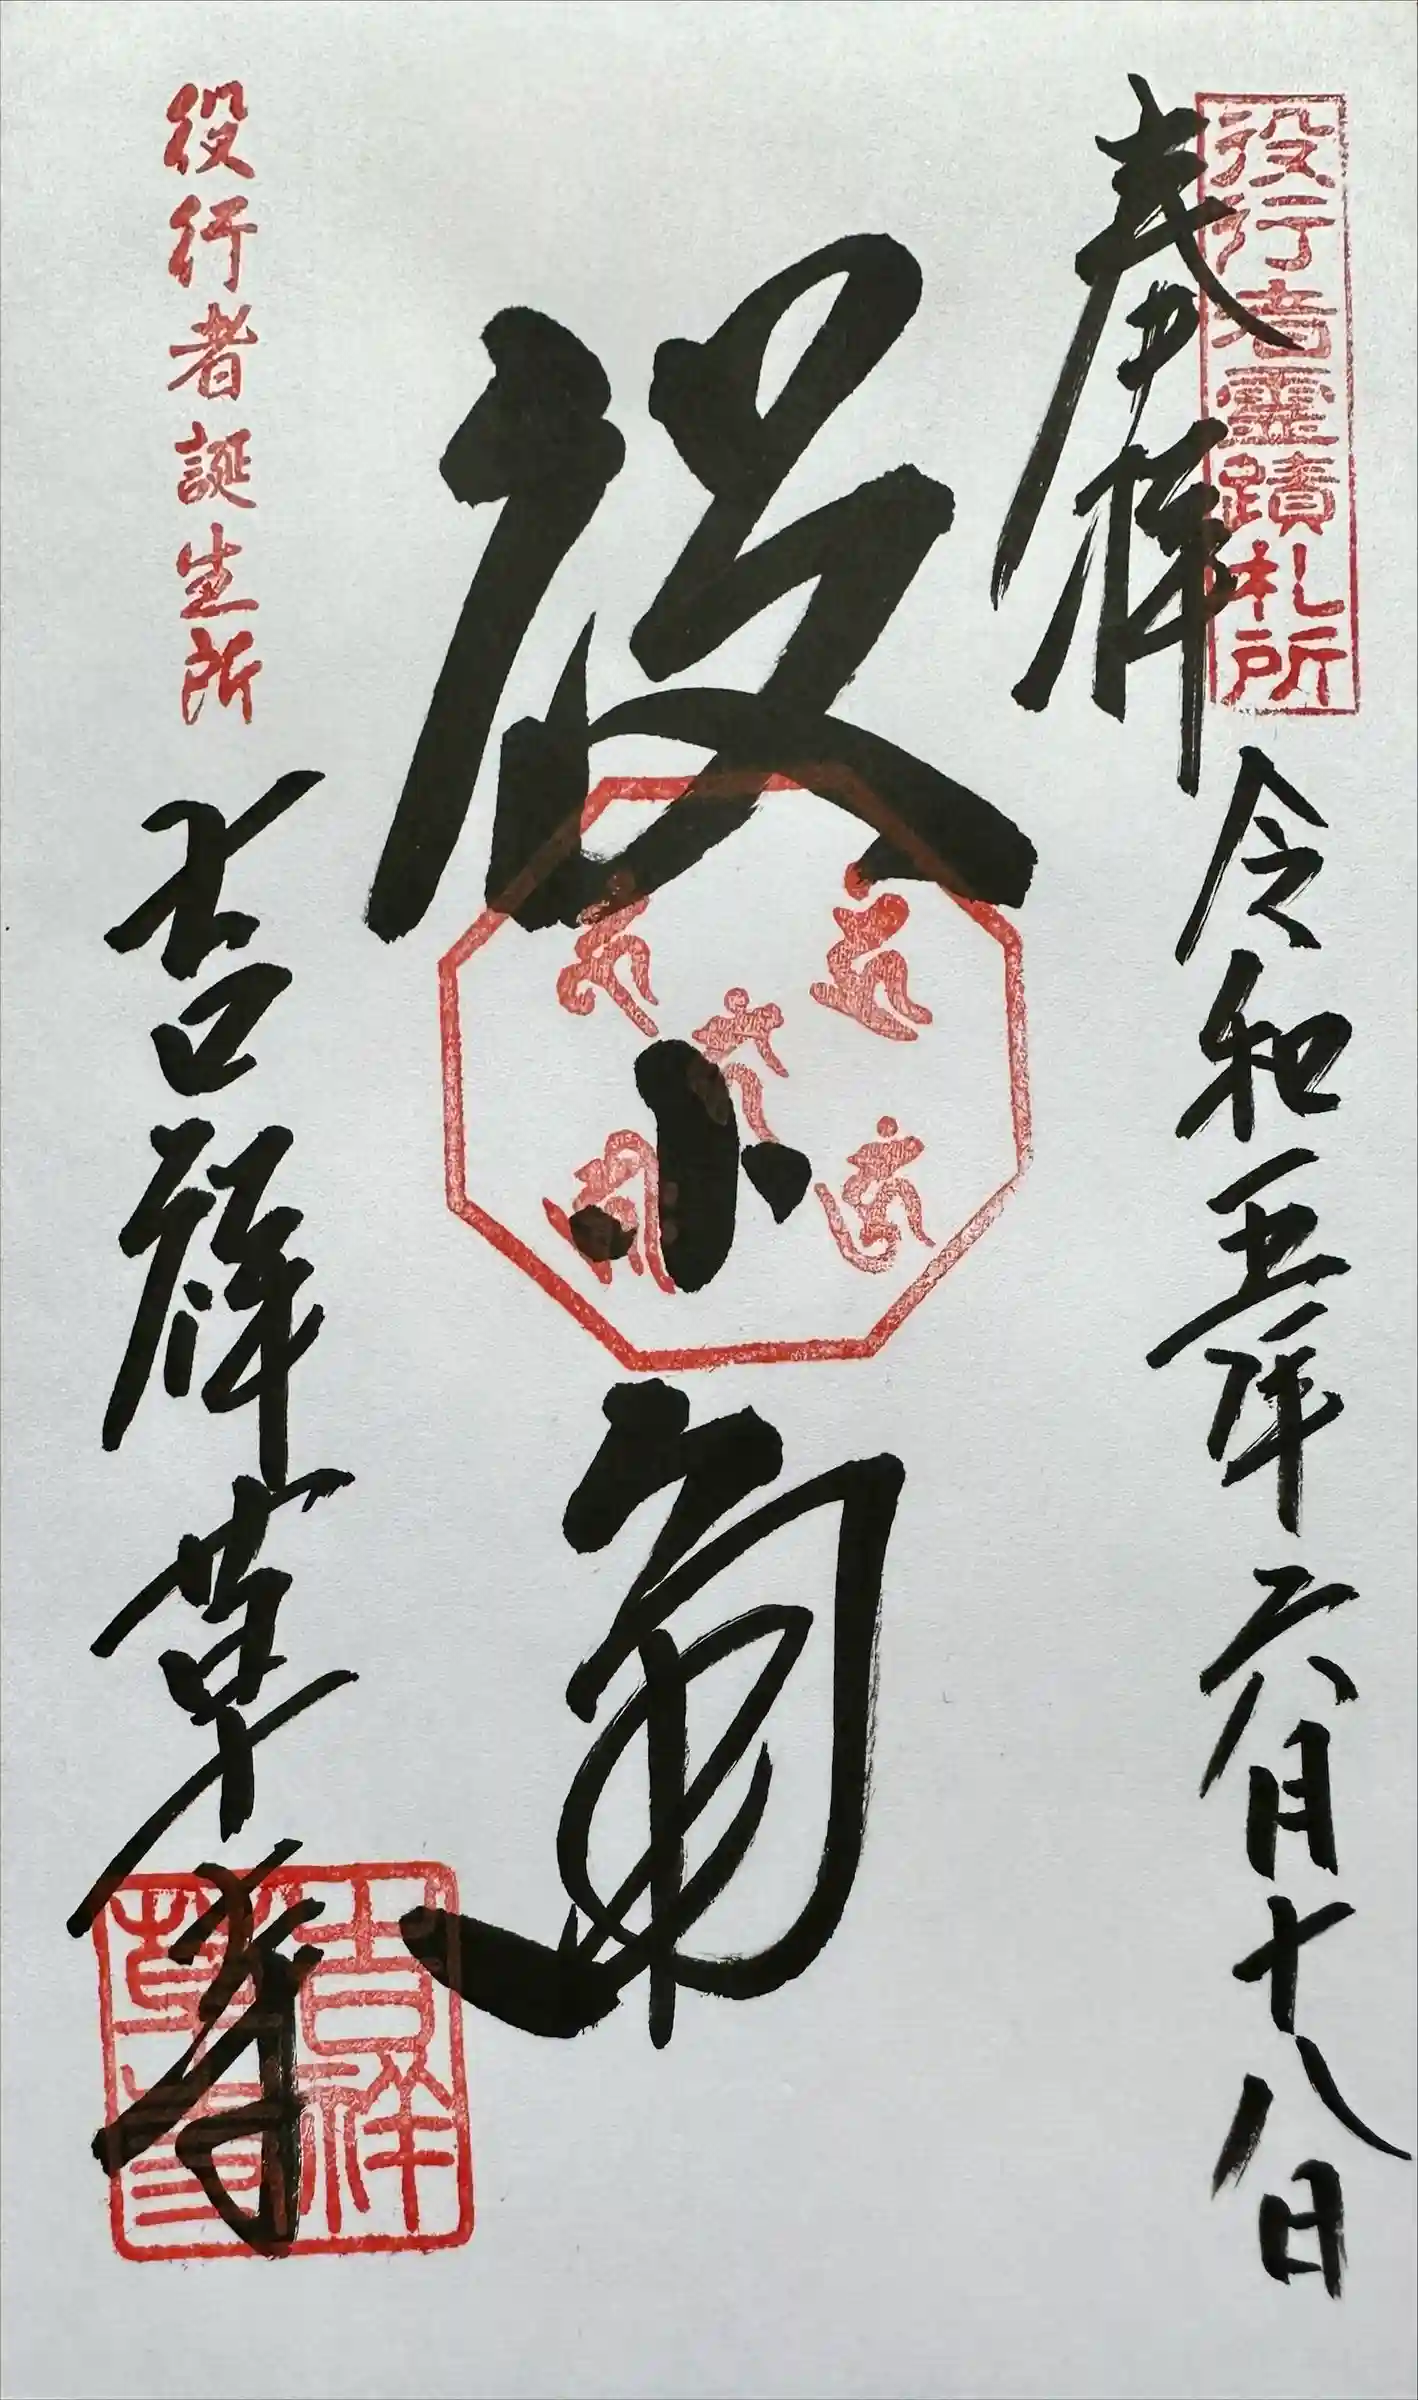 役行者霊蹟札所
奉拝
令和五年六月十八日
役小角
役行者誕生所
吉祥草寺
吉祥
草寺